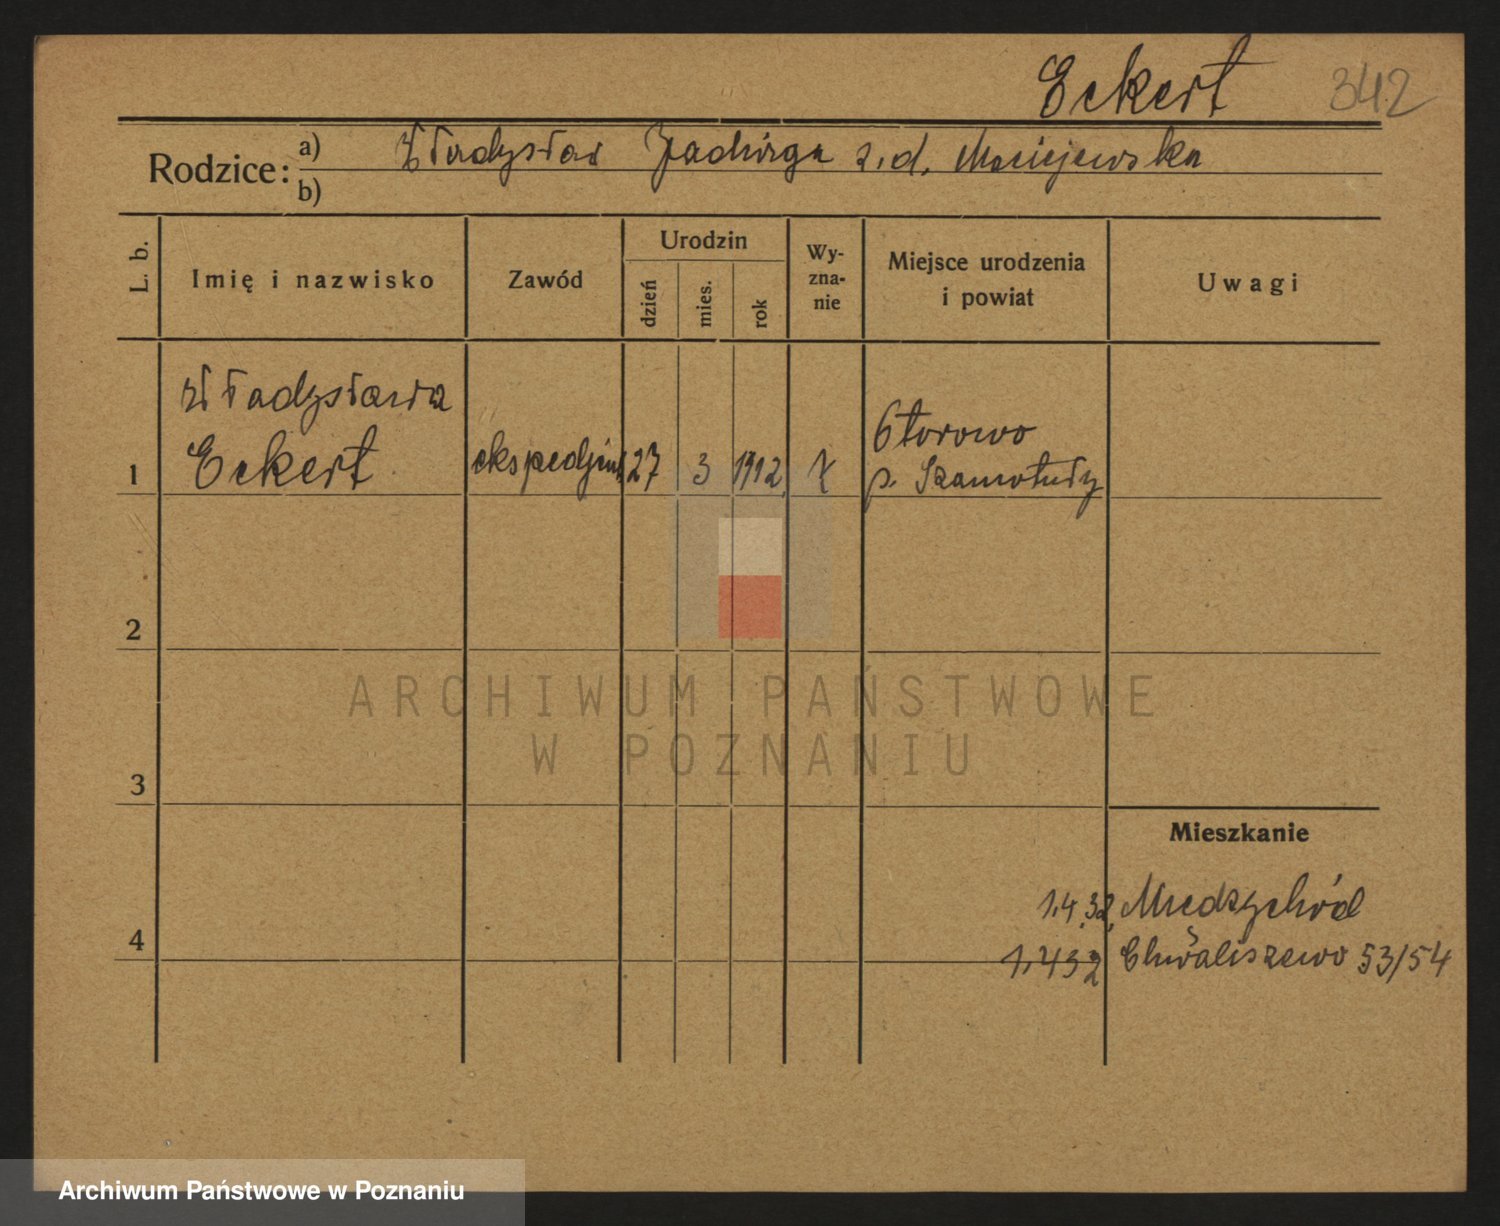 Eckert 342
Rodzice: a) Władysław Jadwiga z.d. Maciejewska
b)
L. b.
Imię i nazwisko
Zawód
Urodzin
dzień
mies.
rok
Wy-
zna-
nie
Miejsce urodzenia
i powiat
Uwagi
Władysława
Eckert
1
ekspedjent
27 3 1912
Otorowo
p. Szamotuły
2
3
4
Mieszkanie
1.4.32, Międzychód
1.432 Chwaliszewo 53/54
ARCHIWUM PAŃSTWOWE
W POZNANIU
Archiwum Państwowe w Poznaniu